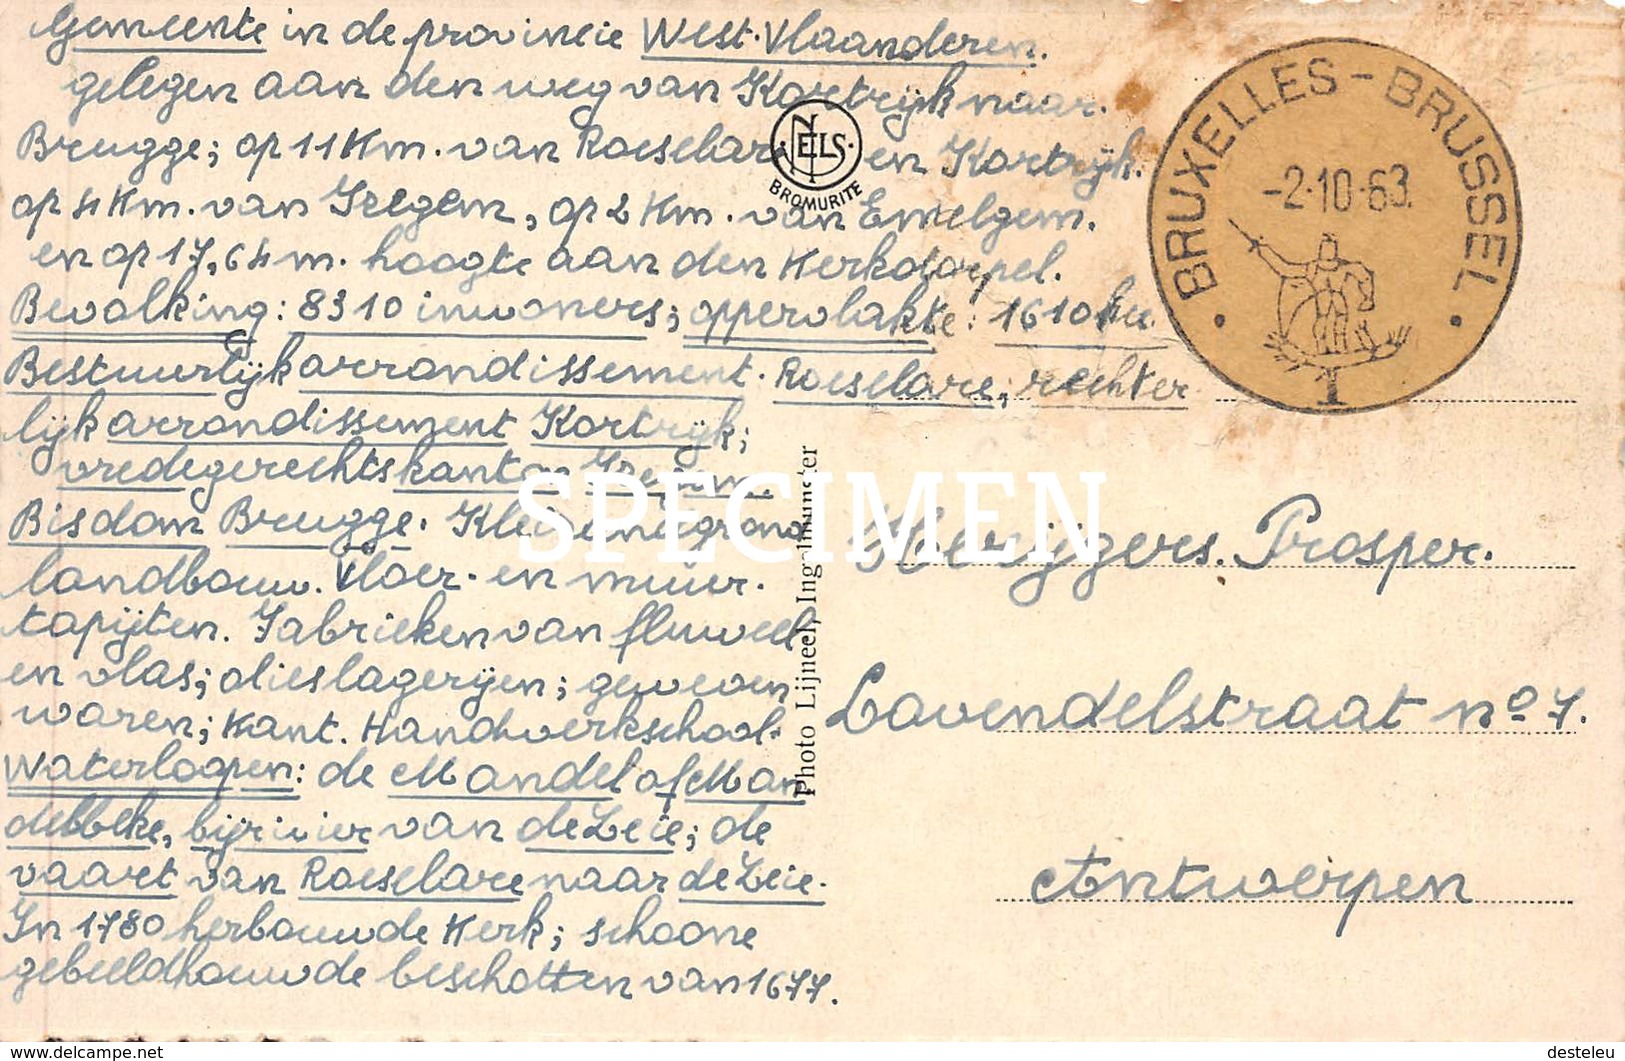 Gemeente in de provincie West-Vlaanderen.
gelegen aan den weg van Kortrijk naar
Brugge; op 11 Km. van Roeselare en Kortrijk.
op 4 Km. van Izegem, op 2 Km. van Emelgem.
en op 17,64 m. hoogte aan den Kerkdorpel.
Bevolking: 8310 inwoners; oppervlakte: 1610 ha
Bestuurlijk arrondissement. Roeselare; rechter
lijk arrondissement Kortrijk;
vredegerechtskanton Izegem.
Bisdom Brugge. Klein en
landbouw. Vloer- en muur-
tapijten. Fabrieken van fluweel
en vlas; olieslagerijen; geweven
waren; Kant. Handwerkschool.
Waterloopen: de Mandel of Man
delbeke, bijrivier van de Leie; de
vaart van Roeselare naar de Leie.
In 1780 herbouwde Kerk; schoone
gebeeldhouwde beschotten van 1677.
NELS
BROMURITE
BRUXELLES - BRUSSEL
-2-10-63
1
Photo Lijneel, Ingelmunster
SPECIMEN
Prosper.
Lavendelstraat nº 7.
Antwerpen
www.delcampe.net
desteleu